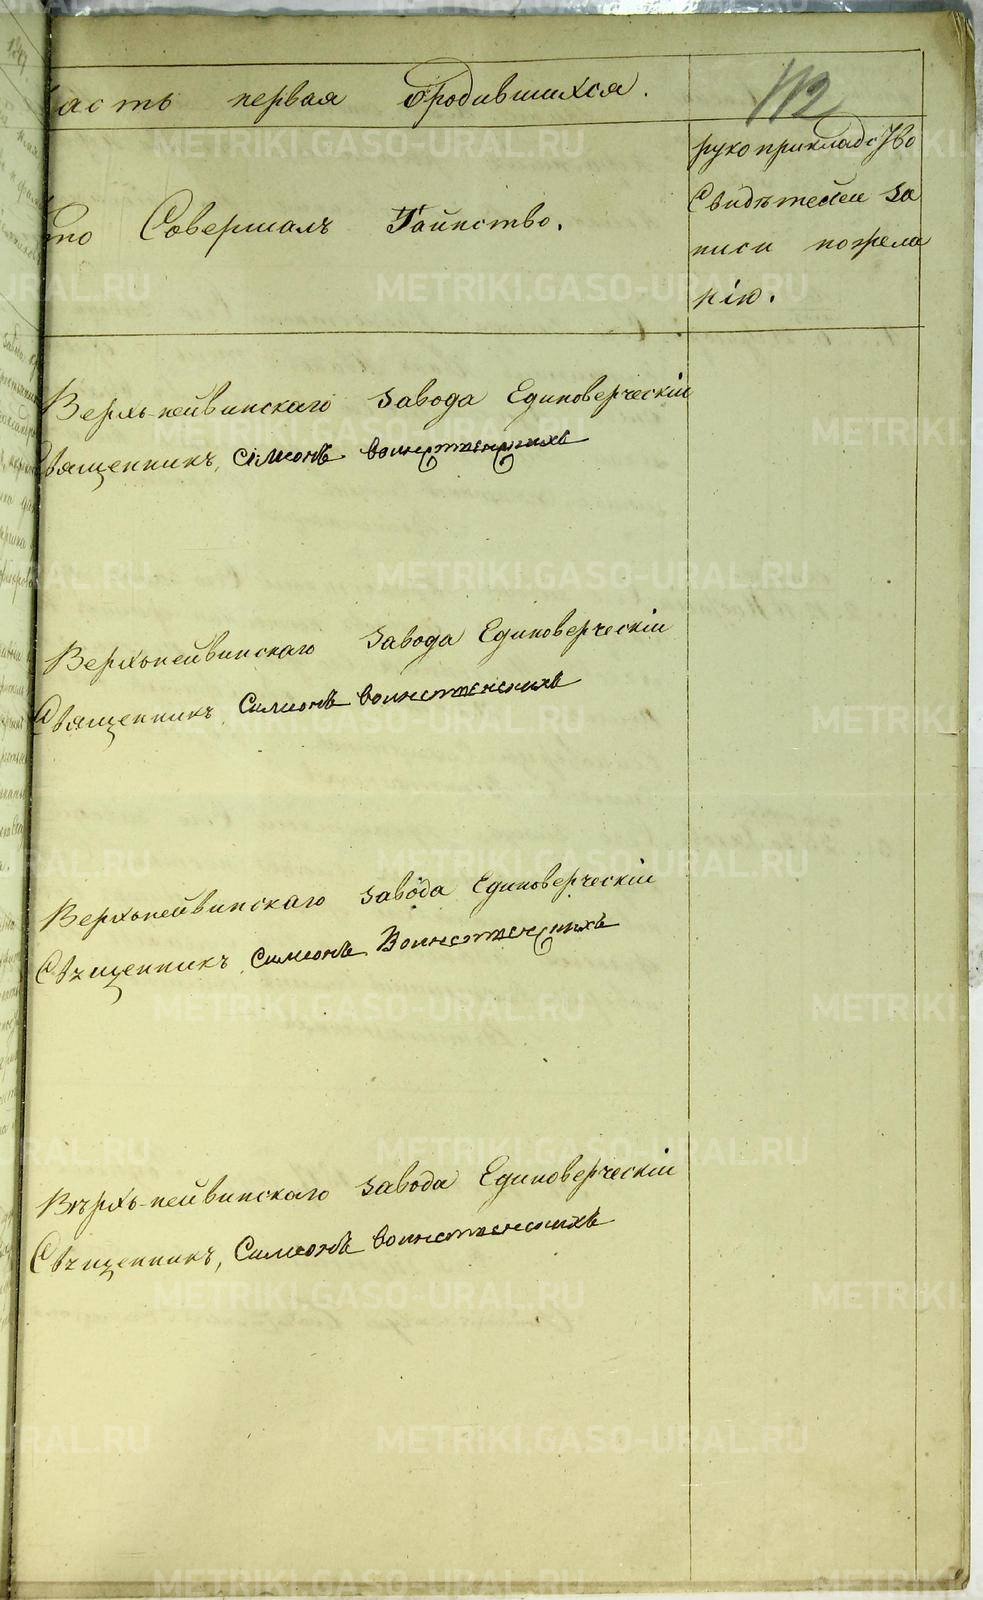 асть первая о родившихся.
112
то Совершалъ Таинство.
рукоприкладство
Свидѣтелей за
писи по жела
нію.
Верхъ-нейвинскаго завода Единоверческій
Священникъ, Симеонъ Воинственскихъ
Верхонейвинскаго завода Единоверческій
Священникъ Симеонъ воинственскихъ
Верхонейвинскаго завода Единоверческій
Священникъ Симеонъ Воинственскихъ
Верхъ-нейвинскаго завода Единоверческій
Священникъ, Симеонъ воинственскихъ
METRIKI.GASO-URAL.RU